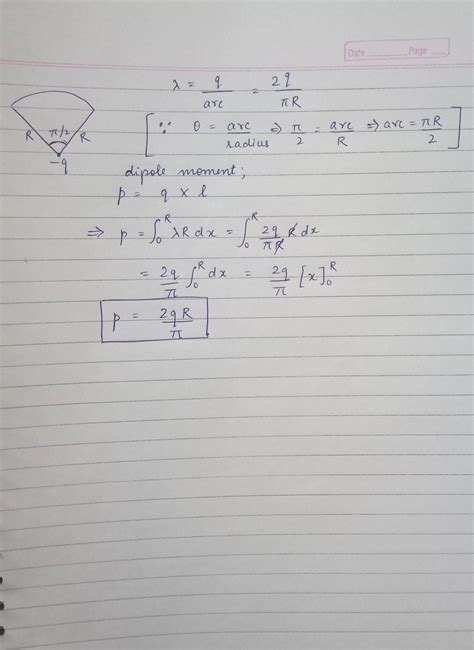 Date ________ Page ____
λ = q/arc = 2q/πR
R π/2 R
-q
[∵ θ = arc/radius ⇒ π/2 = arc/R ⇒ arc = πR/2]
dipole moment;
p = q × l
⇒ p = ∫₀ᴿ λR dx = ∫₀ᴿ 2q/πR R dx
= 2q/π ∫₀ᴿ dx = 2q/π [x]₀ᴿ
p = 2qR/π